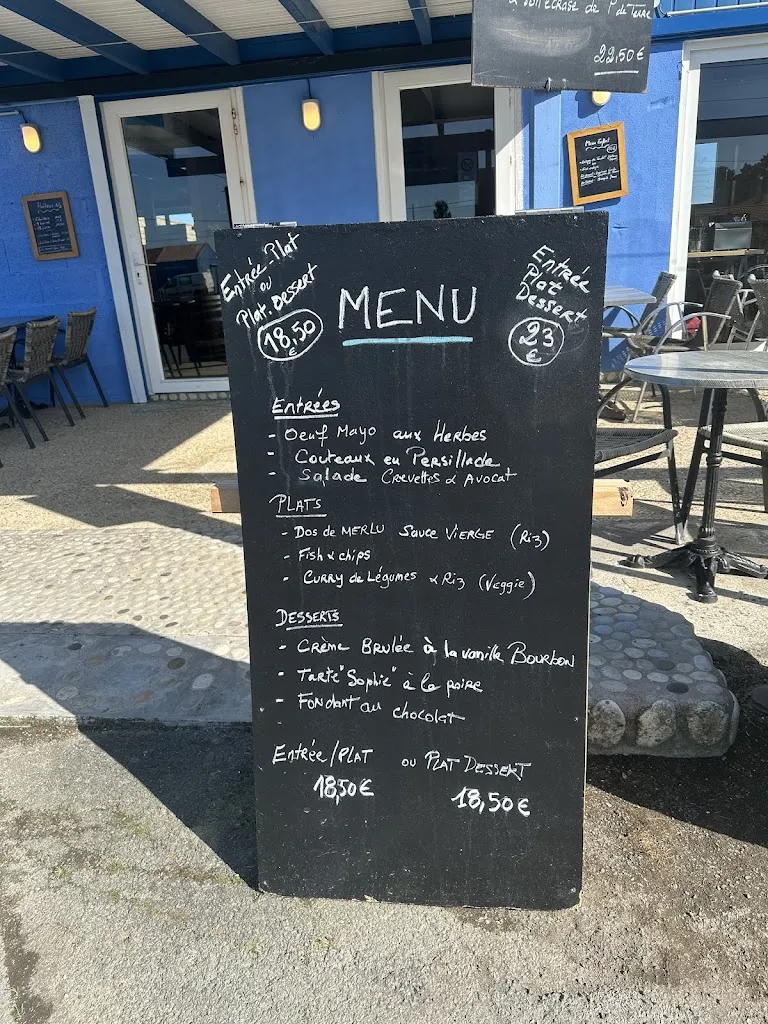 & son écrasé de P de Terre
22,50€
Menu Enfant
Entrée-Plat
ou
Plat-Dessert
18,50
€
MENU
Entrée
Plat
Dessert
23
€
Entrées
- Oeuf Mayo aux Herbes
- Couteaux en Persillade
- Salade Crevettes & Avocat
PLATS
- Dos de MERLU Sauce VIERGE (Riz)
- Fish & chips
- CURRY de Légumes & Riz (Veggie)
DESSERTS
- CRÈME BRULÉE à la vanille BOURBON
- TARTE "Sophie" à la poire
- FONDANT au chocolat
-
Entrée/PLAT ou PLAT DESSERT
18,50€ 18,50€